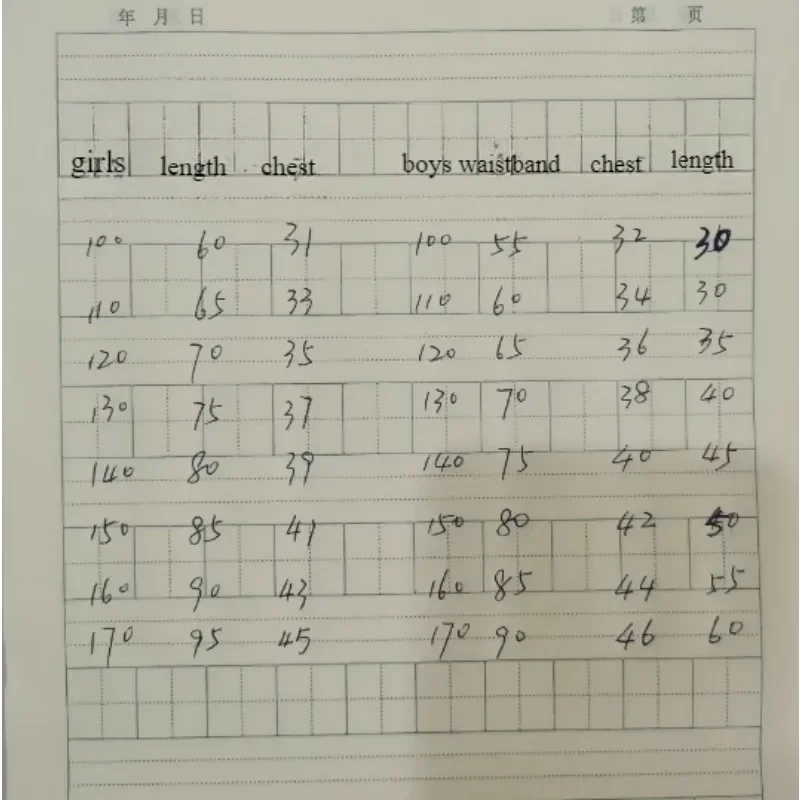 年 月 日 第 页
girls length chest boys waistband chest length
100 60 31 100 55 32 30
110 65 33 110 60 34 30
120 70 35 120 65 36 35
130 75 37 130 70 38 40
140 80 39 140 75 40 45
150 85 41 150 80 42 50
160 90 43 160 85 44 55
170 95 45 170 90 46 60